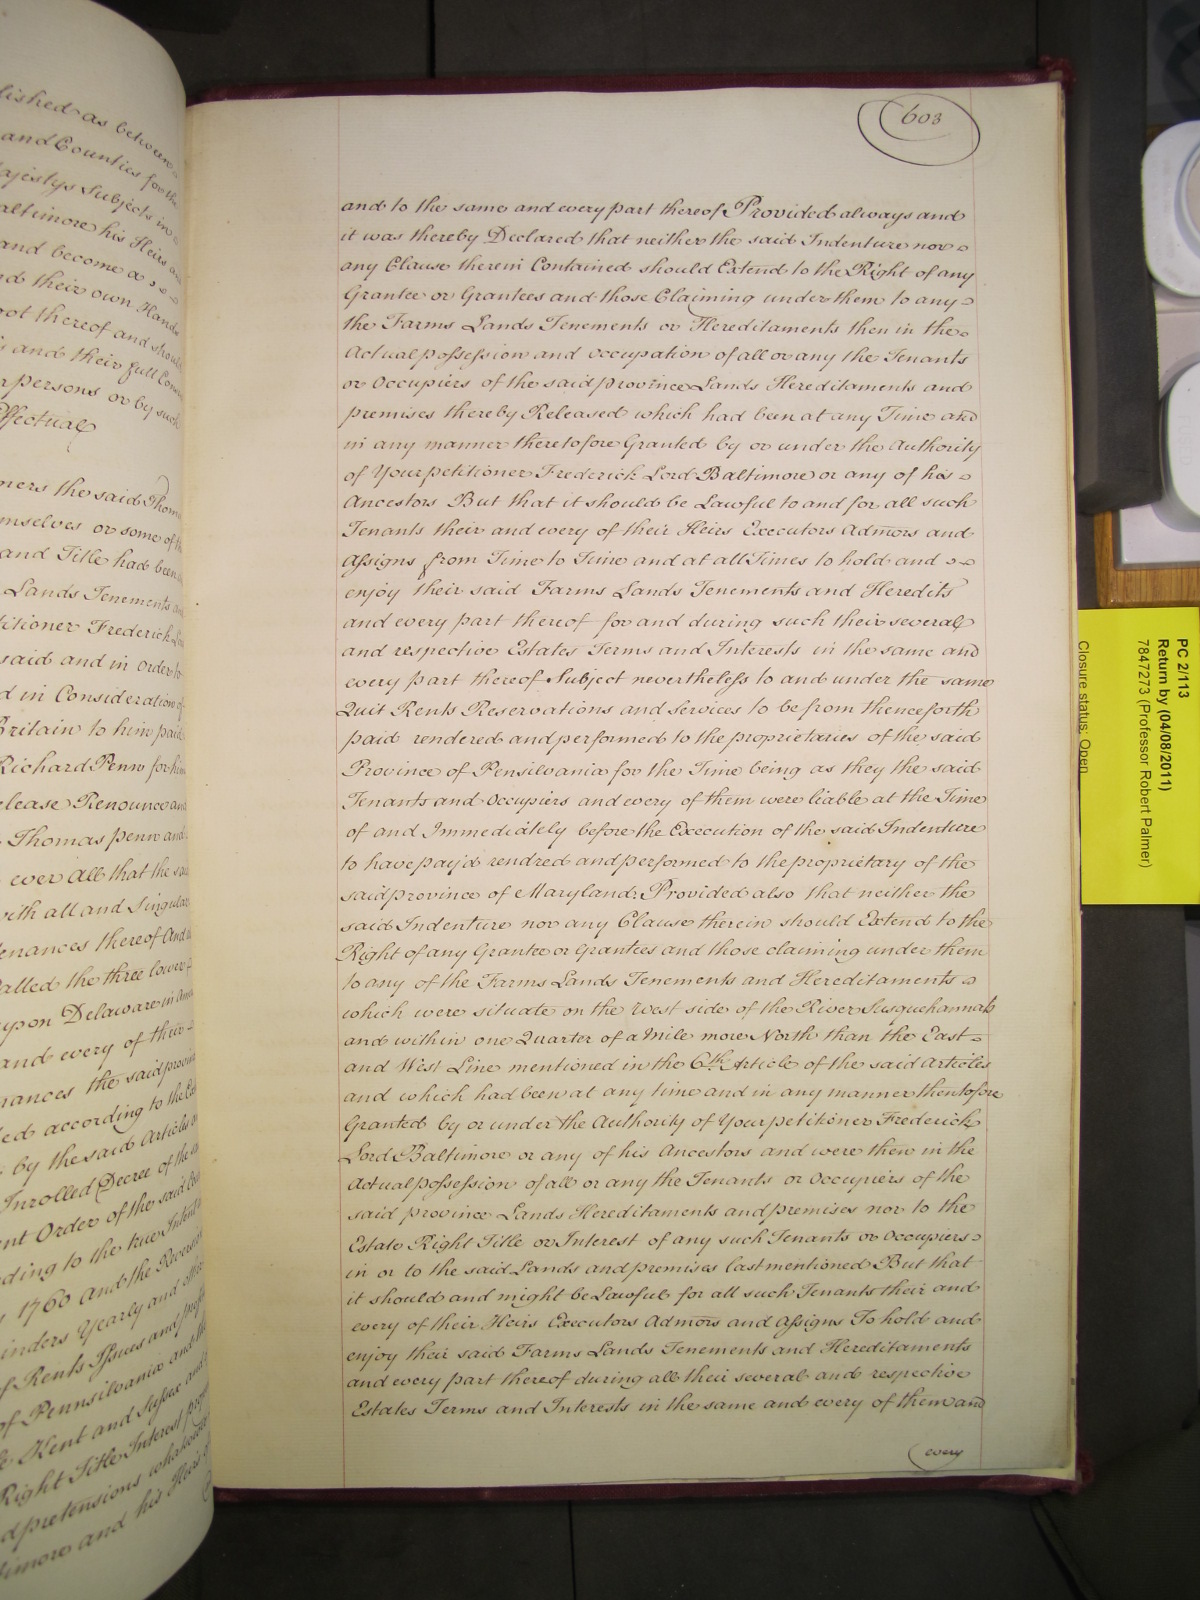 lished as between
and Counties for the
ajestys Subjects in
altimore his Heirs
and become a
nd their own Hands
oot thereof and should
s and their full Com
persons or by such
Effectual
ners the said Thom
mselves or some of th
and Title had been
Lands Tenements
titioner Frederick
said and in Order to
d in Consideration of
Britain to him paid
Richard Penn for him
elease Renounce and
Thomas penn and
ever All that the said
with all and Singular
enances thereof And
alled the three lower
upon Delaware in
and every of their
nances the said provin
led according to the
by the said Articles
Inrolled Decree of the
ent Order of the said
ding to the true Intent
1760 And the Reversion
inders Yearly and other
f Rents Issues and prof
of Pennsilvania and the
Kent and Sussex and
Right Title Interest
d pretensions whatsoever
timore and his Heirs
603
and to the same and every part thereof Provided always and
it was thereby Declared that neither the said Indenture nor
any Clause therein Contained should Extend to the Right of any
Grantee or Grantees and those Claiming under them to any
the Farms Lands Tenements or Hereditaments then in the
Actual possession and occupation of all or any the Tenants
or Occupiers of the said province Lands Hereditaments and
premises thereby Released which had been at any Time and
in any manner theretofore Granted by or under the Authority
of Your petitioner Frederick Lord Baltimore or any of his
Ancestors But that it should be Lawful to and for all such
Tenants their and every of their Heirs Executors Admors and
Assigns from Time to Time and at all Times to hold and
enjoy their said Farms Lands Tenements and Heredits
and every part thereof for and during such their several
and respective Estates Terms and Interests in the same and
every part thereof Subject nevertheless to and under the same
Quit Rents Reservations and Services to be from thenceforth
paid rendered and performed to the proprietaries of the said
Province of Pensilvania for the Time being as they the said
Tenants and Occupiers and every of them were liable at the Time
of and Immediately before the Execution of the said Indenture
to have pay'd rendred and performed to the proprietary of the
said province of Maryland: Provided also that neither the
said Indenture nor any Clause therein should Extend to the
Right of any Grantee or Grantees and those claiming under them
to any of the Farms Lands Tenements and Hereditaments
which were situate on the West side of the River Susquehannah
and within one Quarter of a Mile more North than the East
and West Line mentioned in the 6th Article of the said Articles
and which had been at any time and in any manner thentofore
Granted by or under the Authority of Your petitioner Frederick
Lord Baltimore or any of his Ancestors and were then in the
Actual possession of all or any the Tenants or Occupiers of the
said province Lands Hereditaments and premises nor to the
Estate Right Title or Interest of any such Tenants or Occupiers
in or to the said Lands and premises last mentioned But that
it should and might be Lawful for all such Tenants their and
every of their Heirs Executors Admors and Assigns To hold and
enjoy their said Farms Lands Tenements and Hereditaments
and every part thereof during all their several and respective
Estates Terms and Interests in the same and every of them and
every
PC 2/113
Return by (04/08/2011)
7847273 (Professor Robert Palmer)
Closure status: Open